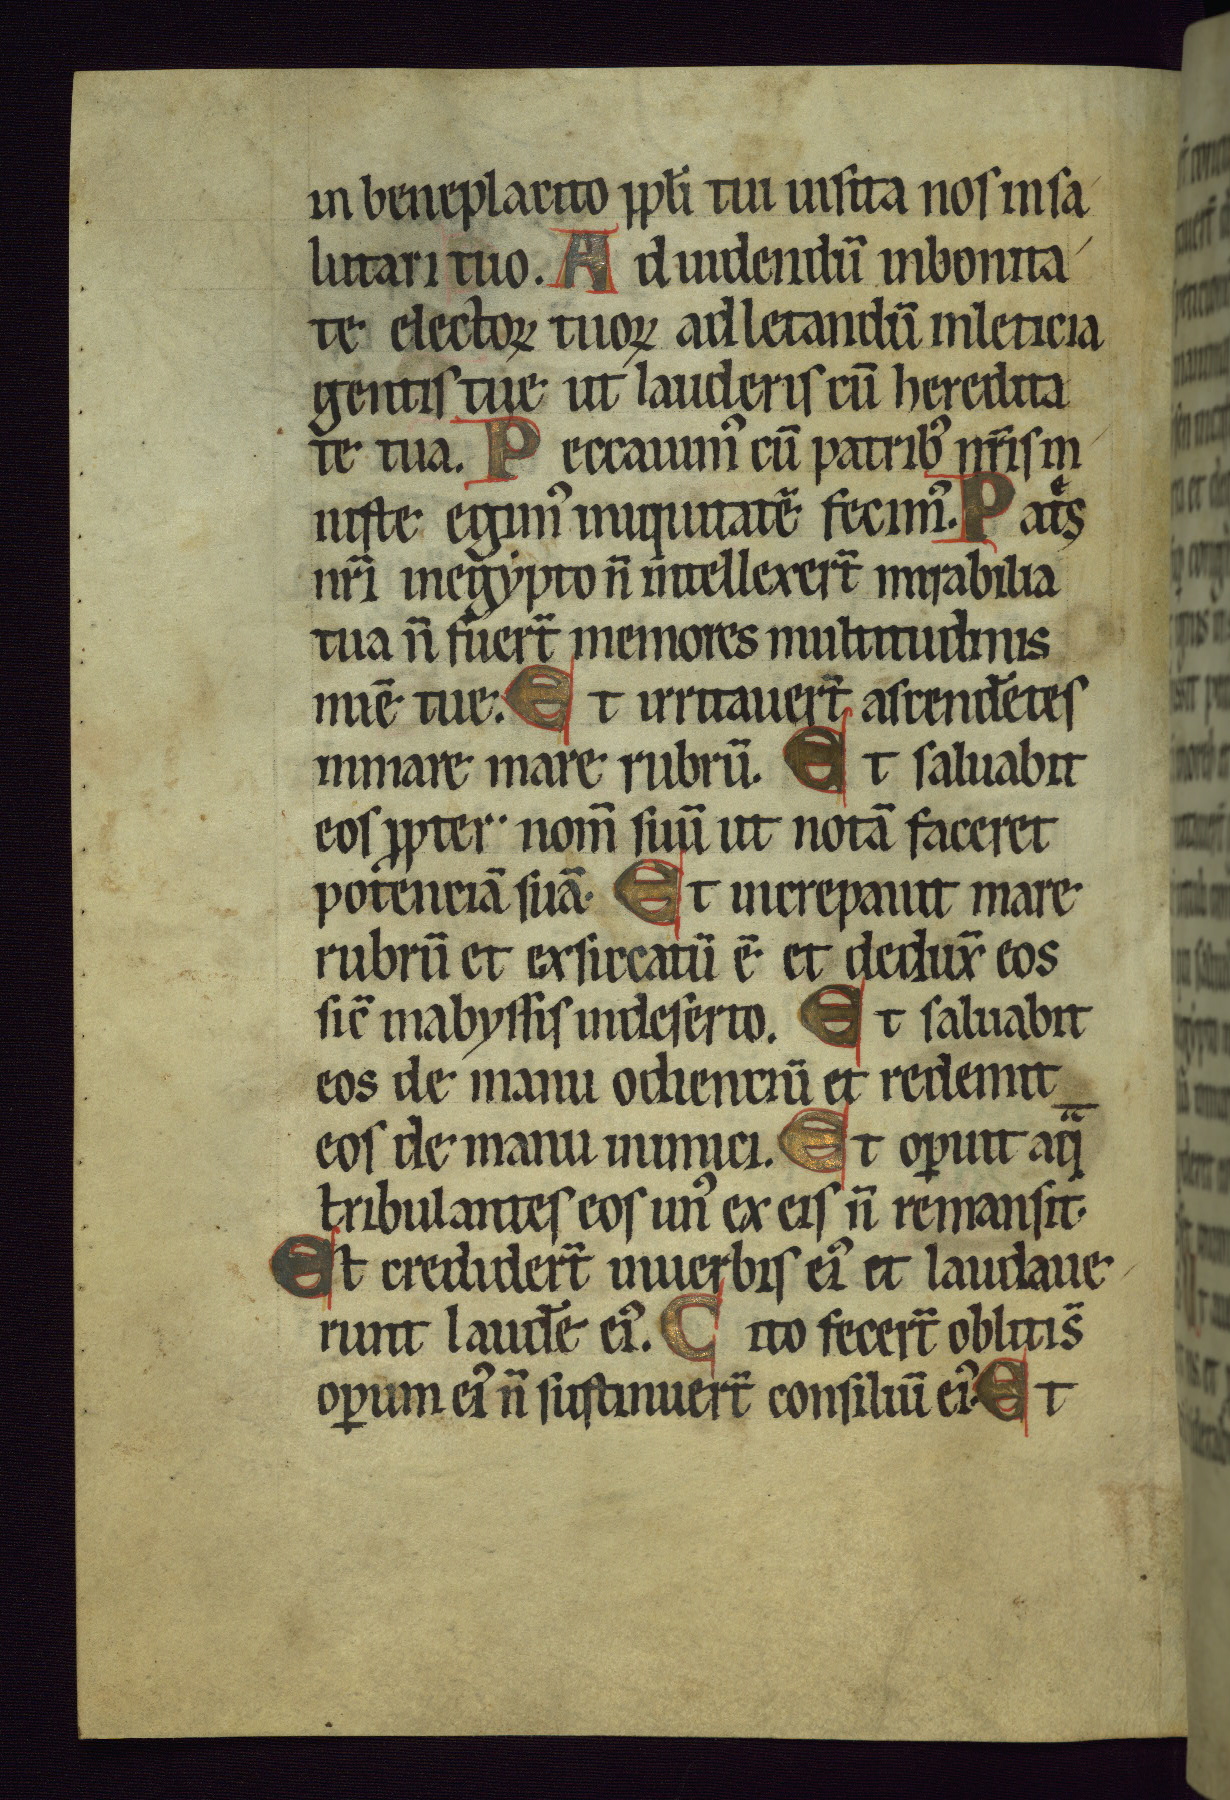 in beneplacito pp̄li tui uisita nos in sa
lutari tuo. Ad uidendū in bonita
te electoꝝ tuoꝝ ad letandū in leticia
gentis tue ut lauderis cū heredita
te tua. Peccauimꝰ cū patribꝰ nr̄is in
iuste egimꝰ iniquitatē fecimꝰ. Pat͛s
nr̄i in egypto n̄ intellexer̄t mirabilia
tua n̄ fuer̄t memores multitudinis
mie̅ tue. Et irritauer̄t ascendētes
in mare mare rubrū. Et saluabit
eos ꝓpter nom̄ suū ut notā faceret
potenciā suā. Et increpauit mare
rubrū et exsiccatū ē et dedux̄ eos
sic̄ in abyssis in deserto. Et saluabit
eos de manu odienciū et redemit
eos de manu inimici. Et oꝑuit aq̄
tribulantes eos unꝰ ex eis n̄ remansit.
Et crediderт̄ in uerbis eiꝰ et laudaue
runt laudē eiꝰ. Cito fecer̄t obliti s̄
oꝑum eiꝰ n̄ sustinuer̄t consiliū eiꝰ. Et